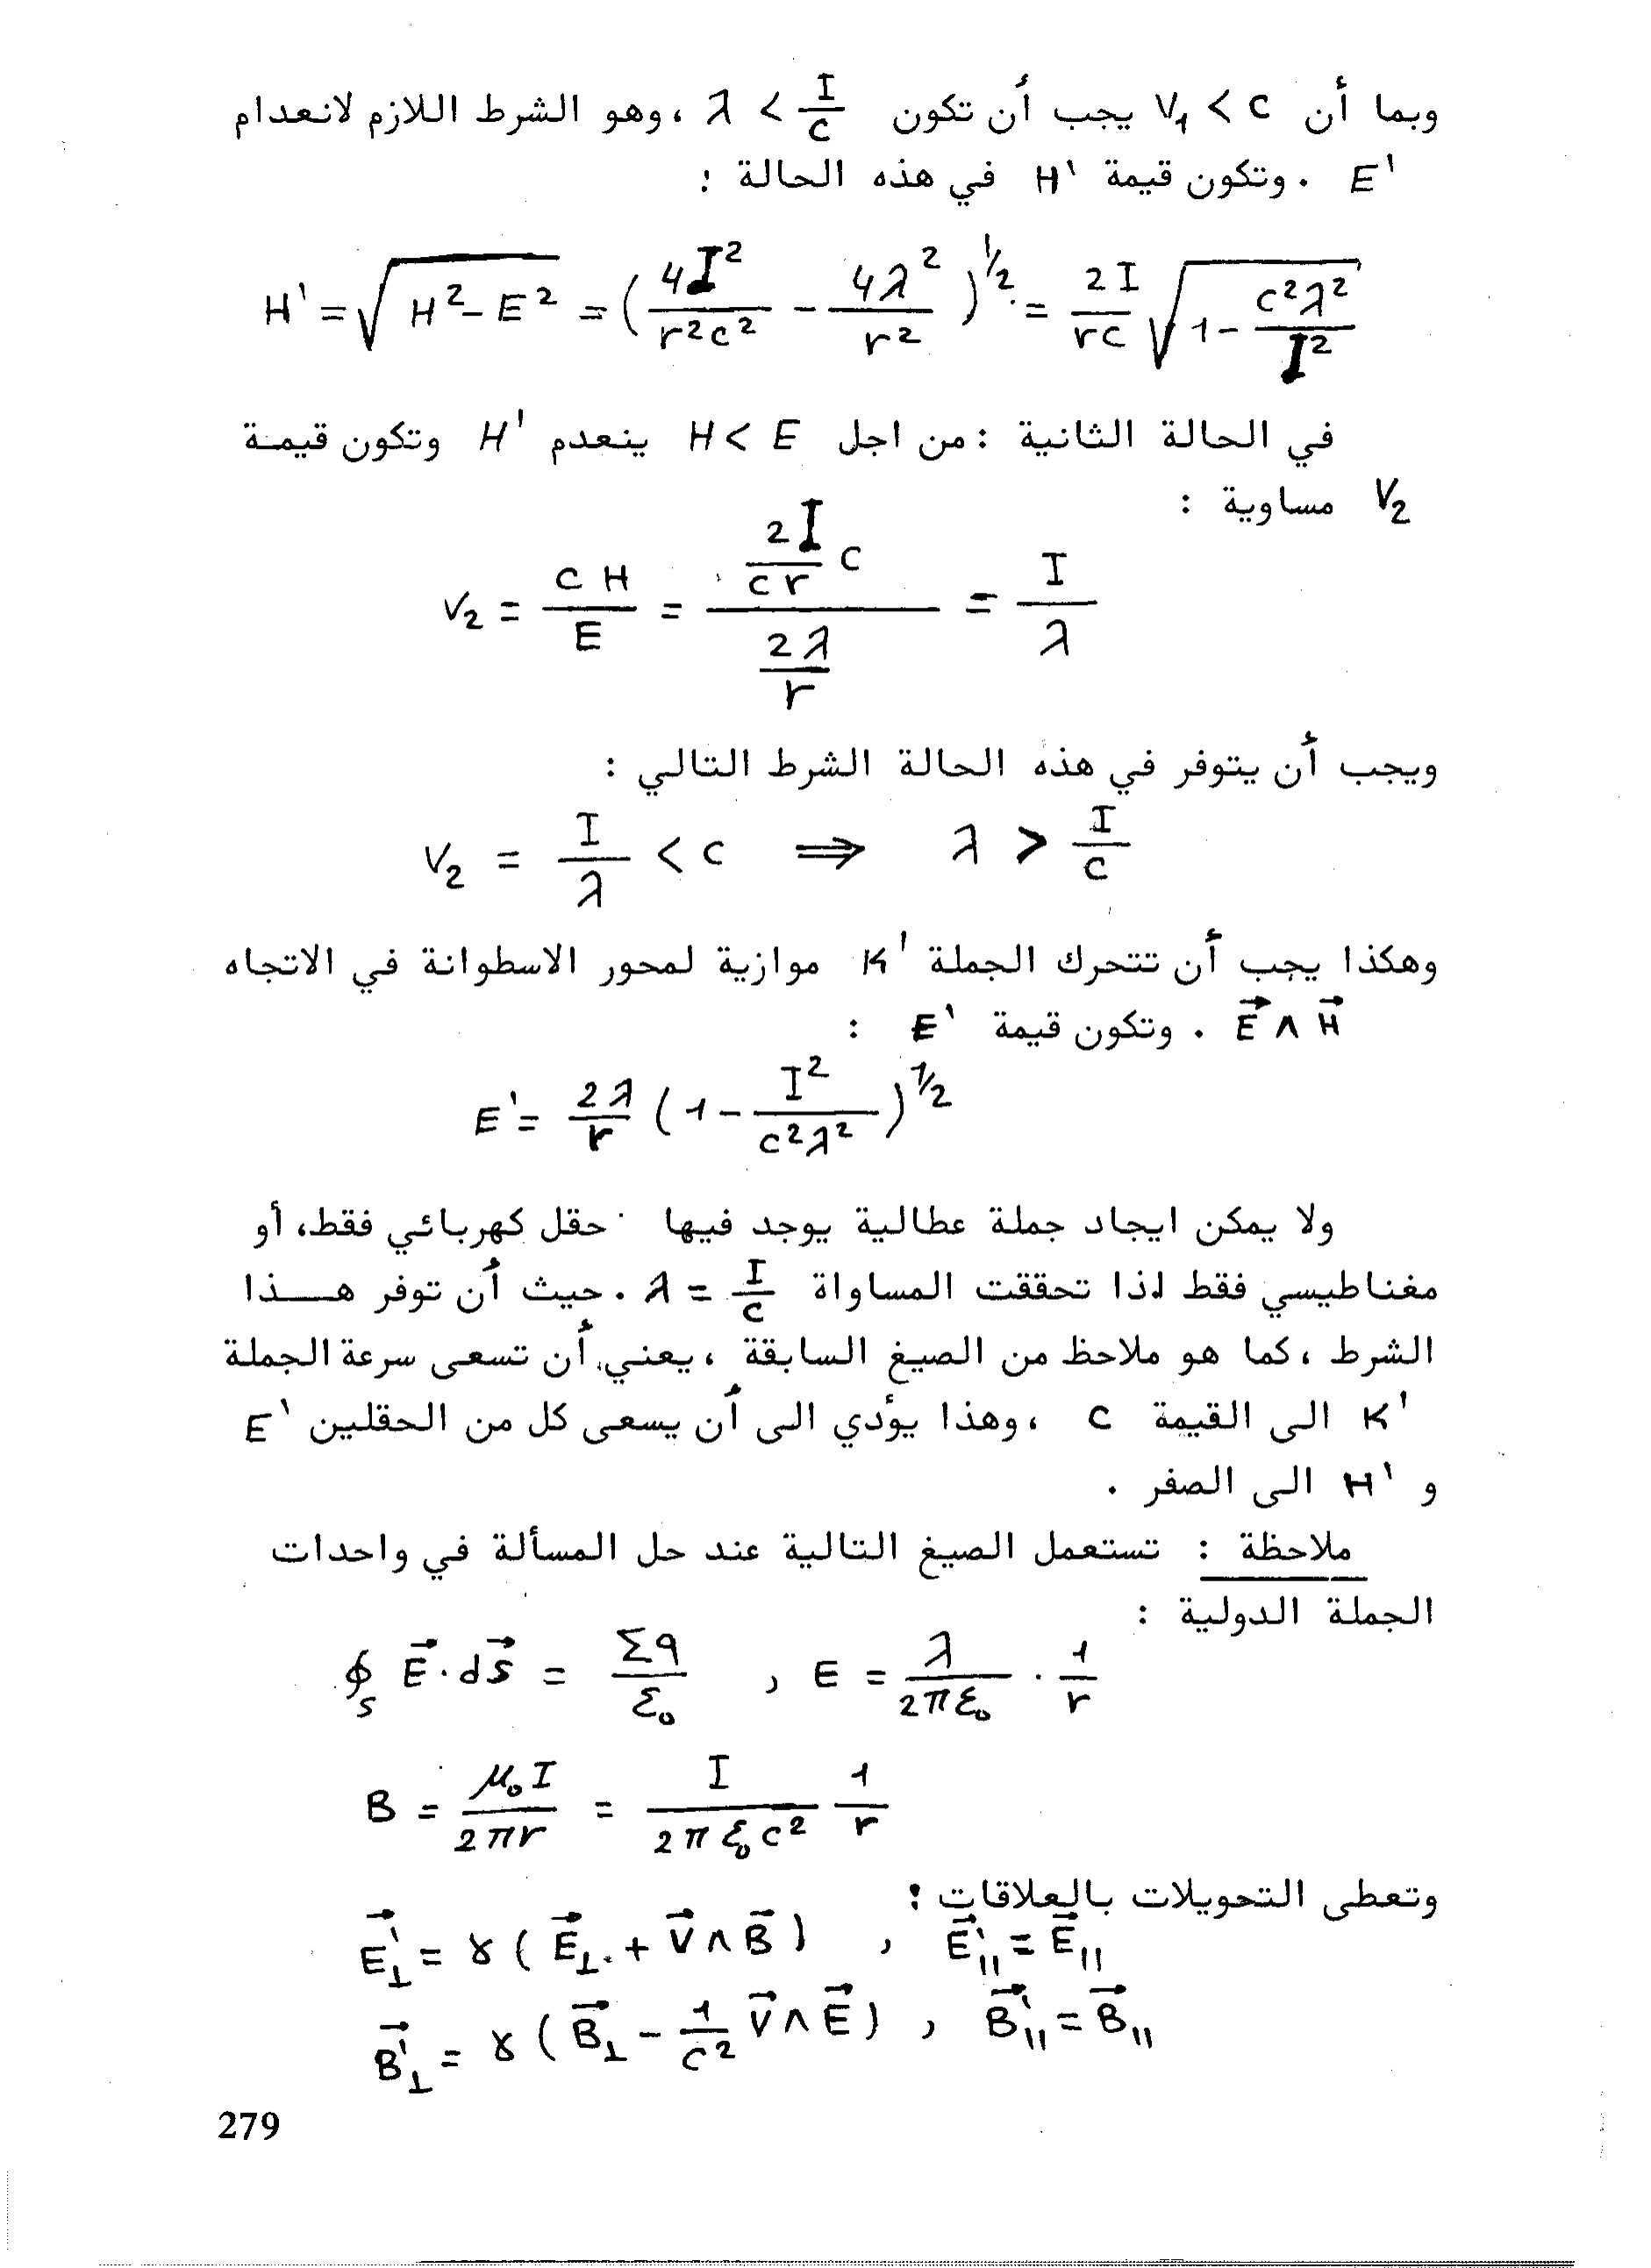 وبما أن V₁ < C يجب أن تكون λ < I/C ، وهو الشرط اللازم لانعدام
E' . وتكون قيمة H' في هذه الحالة :
H' = √(H² - E²) = (4I²/r²c² - 4λ²/r²)^½ = 2I/rc √(1 - c²λ²/I²)
في الحالة الثانية : من اجل H < E ينعدم H' وتكون قيمة
V₂ مساوية :
V₂ = CH/E = (2I/cr C)/(2λ/r) = I/λ
ويجب أن يتوفر في هذه الحالة الشرط التالي :
V₂ = I/λ < C ⟹ λ > I/C
وهكذا يجب أن تتحرك الجملة K' موازية لمحور الاسطوانة في الاتجاه
E⃗ ∧ H⃗ . وتكون قيمة E' :
E' = 2λ/r (1 - I²/c²λ²)^½
ولا يمكن ايجاد جملة عطالية يوجد فيها حقل كهربائي فقط، أو
مغناطيسي فقط اذا تحققت المساواة λ = I/C . حيث أن توفر هـــذا
الشرط ، كما هو ملاحظ من الصيغ السابقة ، يعني أن تسعى سرعة الجملة
K' الى القيمة C ، وهذا يؤدي الى أن يسعى كل من الحقلين E'
و H' الى الصفر .
ملاحظة : تستعمل الصيغ التالية عند حل المسألة في واحدات
الجملة الدولية :
∮ₛ E⃗·dS⃗ = Σq/ε₀ , E = λ/2πε₀ · 1/r
B = μ₀I/2πr = I/2πε₀c² 1/r
وتعطى التحويلات بالعلاقات :
E⃗'⊥ = γ(E⃗⊥ + V⃗ ∧ B⃗) , E⃗'∥ = E⃗∥
B⃗'⊥ = γ(B⃗⊥ - 1/c² V⃗ ∧ E⃗) , B⃗'∥ = B⃗∥
279